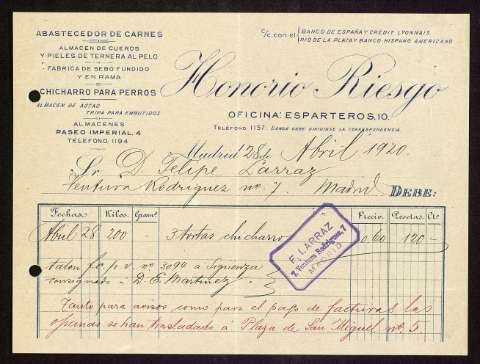 ABASTECEDOR DE CARNES
ALMACEN DE CUEROS
Y PIELES DE TERNERA AL PELO
FABRICA DE SEBO FUNDIDO
Y EN RAMA
CHICHARRO PARA PERROS
ALMACEN DE AGTAD
TRIPA PARA EMBUTIDOS
ALMACENES
PASEO IMPERIAL, 4
TELEFONO, 1194
C/c. con el BANCO DE ESPAÑA Y CREDIT LYONNAIS
RIO DE LA PLATA Y BANCO HISPANO AMERICANO
Honorio Riesgo
OFICINA: ESPARTEROS, 10.
TELÉFONO 1157. DONDE DEBE DIRIGIRSE LA CORRESPONDENCIA.
Madrid 28 de Abril 1920.
Sr. D. Felipe Larraz
Ventura Rodriguez nº 7. Madrid DEBE:
Fechas Kilos. Gram. Precio. Pesetas. Cts
Abril 28 200 — 3 tortas chicharro 0,60 120 —
talon f.c. p.v. nº 3094 a Sigüenza
consignado a D. E. Martinez
F. LARRAZ
7, Ventura Rodríguez, 7
MADRID
Tanto para avisos como para el pago de facturas las
oficinas se han trasladado á Plaza de San Miguel nº 5